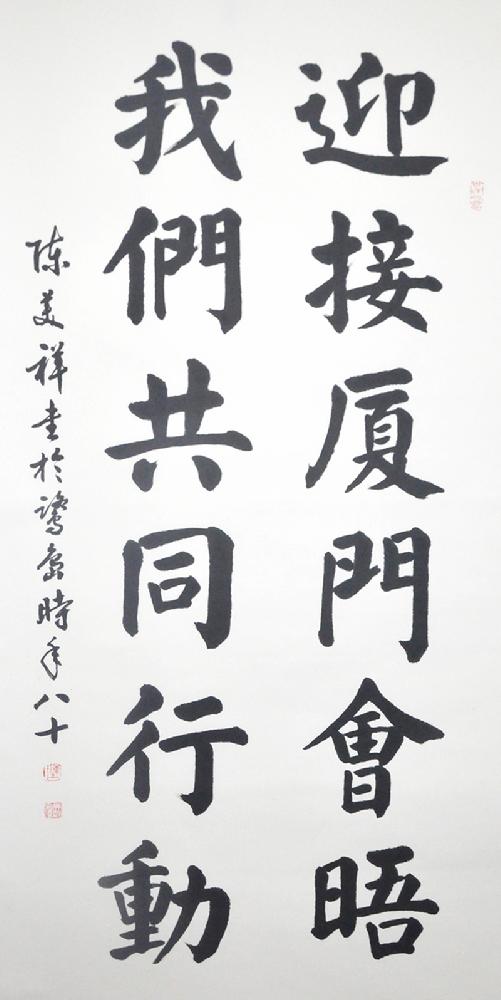 迎接厦門會晤
我們共同行動
陈美祥書於鹭岛時年八十